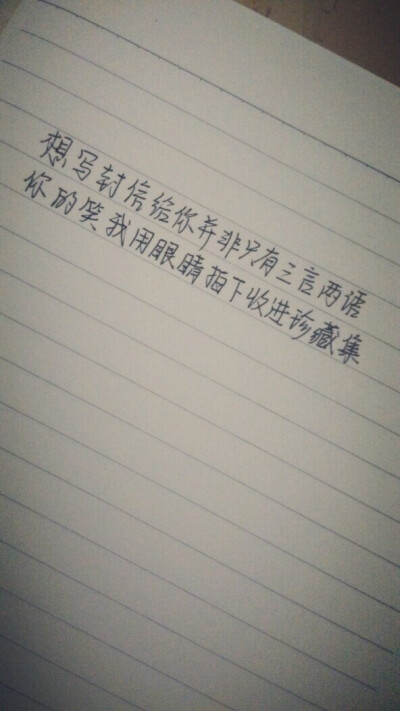 想写封信给你并非只有三言两语
你的笑我用眼睛拍下收进珍藏集